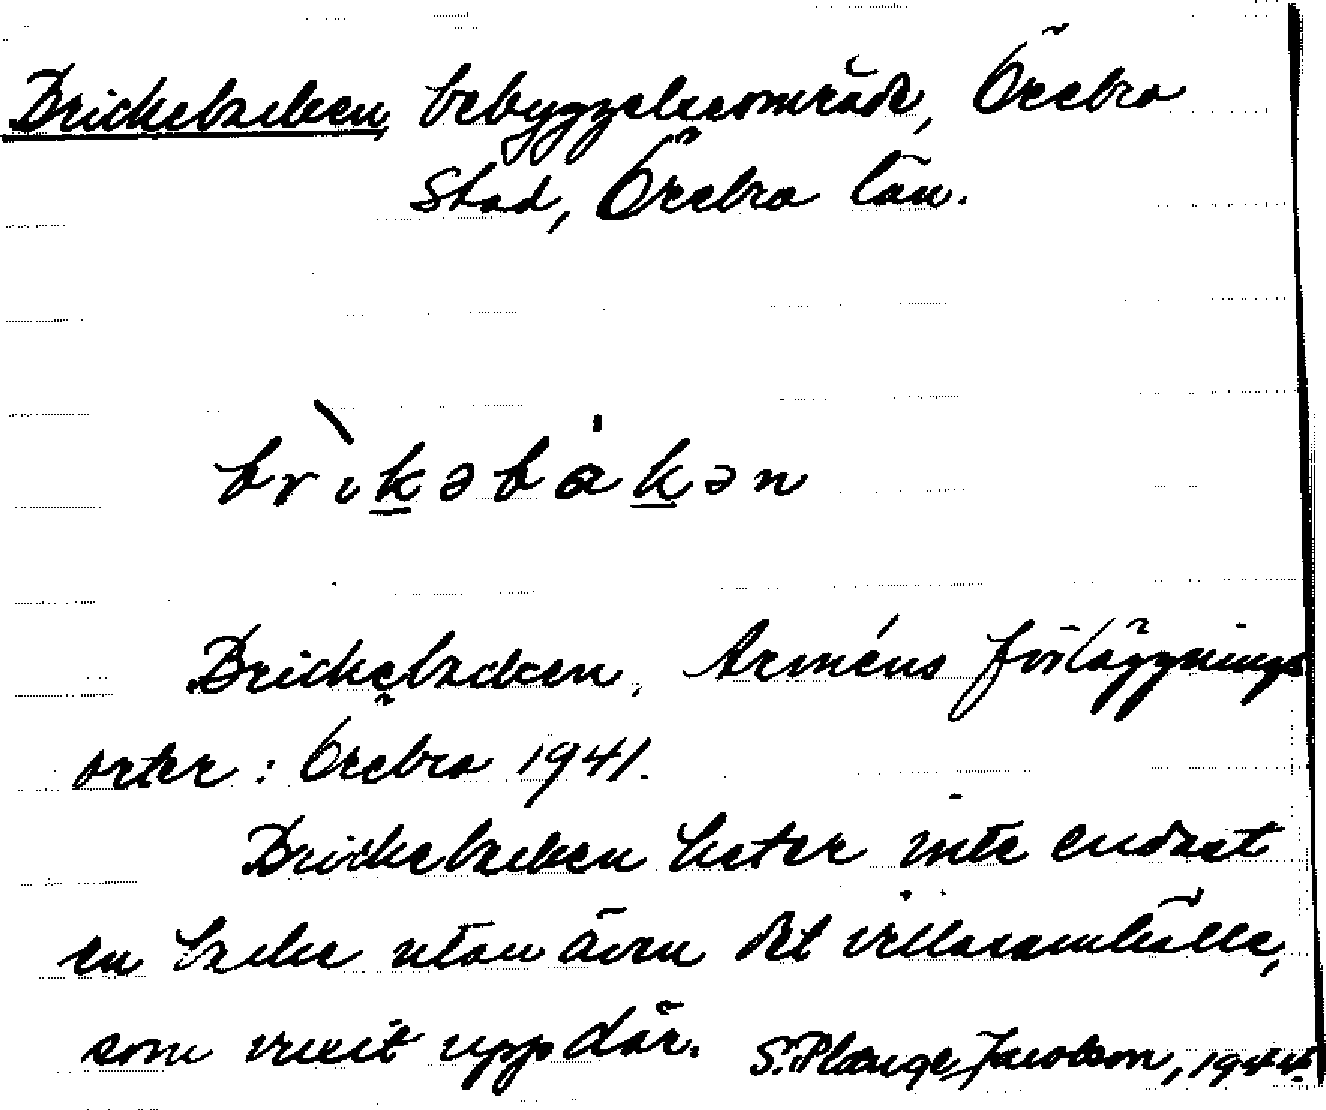 Brickebacken, bebyggelseområde, Örebro
Stad, Örebro län.
brìkəbákən
Brickebacken. Arméns förläggnings
orter: Örebro 1941.
Brickebacken heter inte endast
en backe utan även det villasamhälle,
som vuxit upp där. S. Plænge Jacobson, 1944.